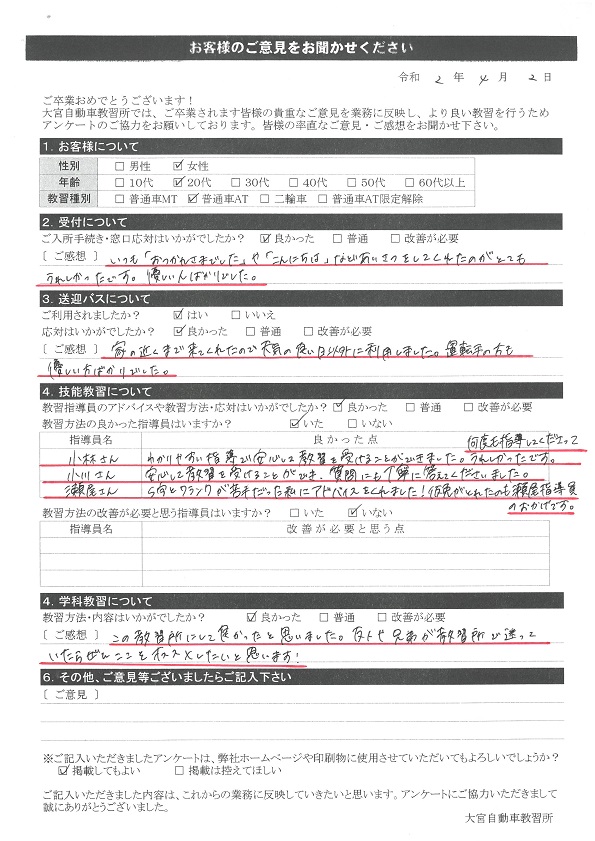 お客様のご意見をお聞かせください
令和 2 年 4 月 2 日
ご卒業おめでとうございます！
大宮自動車教習所では、ご卒業されます皆様の貴重なご意見を業務に反映し、より良い教習を行うため
アンケートのご協力をお願いしております。皆様の率直なご意見・ご感想をお聞かせ下さい。
1. お客様について
性別 □ 男性 ☑ 女性
年齢 □ 10代 ☑ 20代 □ 30代 □ 40代 □ 50代 □ 60代以上
教習種別 □ 普通車MT ☑ 普通車AT □ 二輪車 □ 普通車AT限定解除
2. 受付について
ご入所手続き・窓口応対はいかがでしたか？ ☑ 良かった □ 普通 □ 改善が必要
〔 ご感想 〕 いつも「おつかれさまでした」や「こんにちは」などあいさつをしてくれたのがとても
うれしかったです。優しい人ばかりでした。
3. 送迎バスについて
ご利用されましたか？ ☑ はい □ いいえ
応対はいかがでしたか？ ☑ 良かった □ 普通 □ 改善が必要
〔 ご感想 〕 家の近くまで来てくれたので天気の良い日以外に利用しました。運転手の方も
優しい方ばかりでした。
4. 技能教習について
教習指導員のアドバイスや教習方法・応対はいかがでしたか？ ☑ 良かった □ 普通 □ 改善が必要
教習方法の良かった指導員はいますか？ ☑ いた □ いない
指導員名 良かった点 何度も指導してくださって
小林さん わかりやすい指導で安心して教習を受けることができました。うれしかったです。
小川さん 安心して教習を受けることができ、質問にも丁寧に答えてくださいました。
瀬尾さん S字とクランクが苦手だった私にアドバイスをくれました！仮免がとれたのも瀬尾指導員
のおかげです。
教習方法の改善が必要と思う指導員はいますか？ □ いた ☑ いない
指導員名 改善が必要と思う点
4. 学科教習について
教習方法・内容はいかがでしたか？ ☑ 良かった □ 普通 □ 改善が必要
〔 ご感想 〕 この教習所にして良かったと思いました。友人や兄弟が教習所で迷って
いたらぜひここをオススメしたいと思います！
6. その他、ご意見等ございましたらご記入下さい
〔 ご意見 〕
※ご記入いただきましたアンケートは、弊社ホームページや印刷物に使用させていただいてもよろしいでしょうか？
☑ 掲載してもよい □ 掲載は控えてほしい
ご記入いただきました内容は、これからの業務に反映していきたいと思います。アンケートにご協力いただきまして
誠にありがとうございました。
大宮自動車教習所